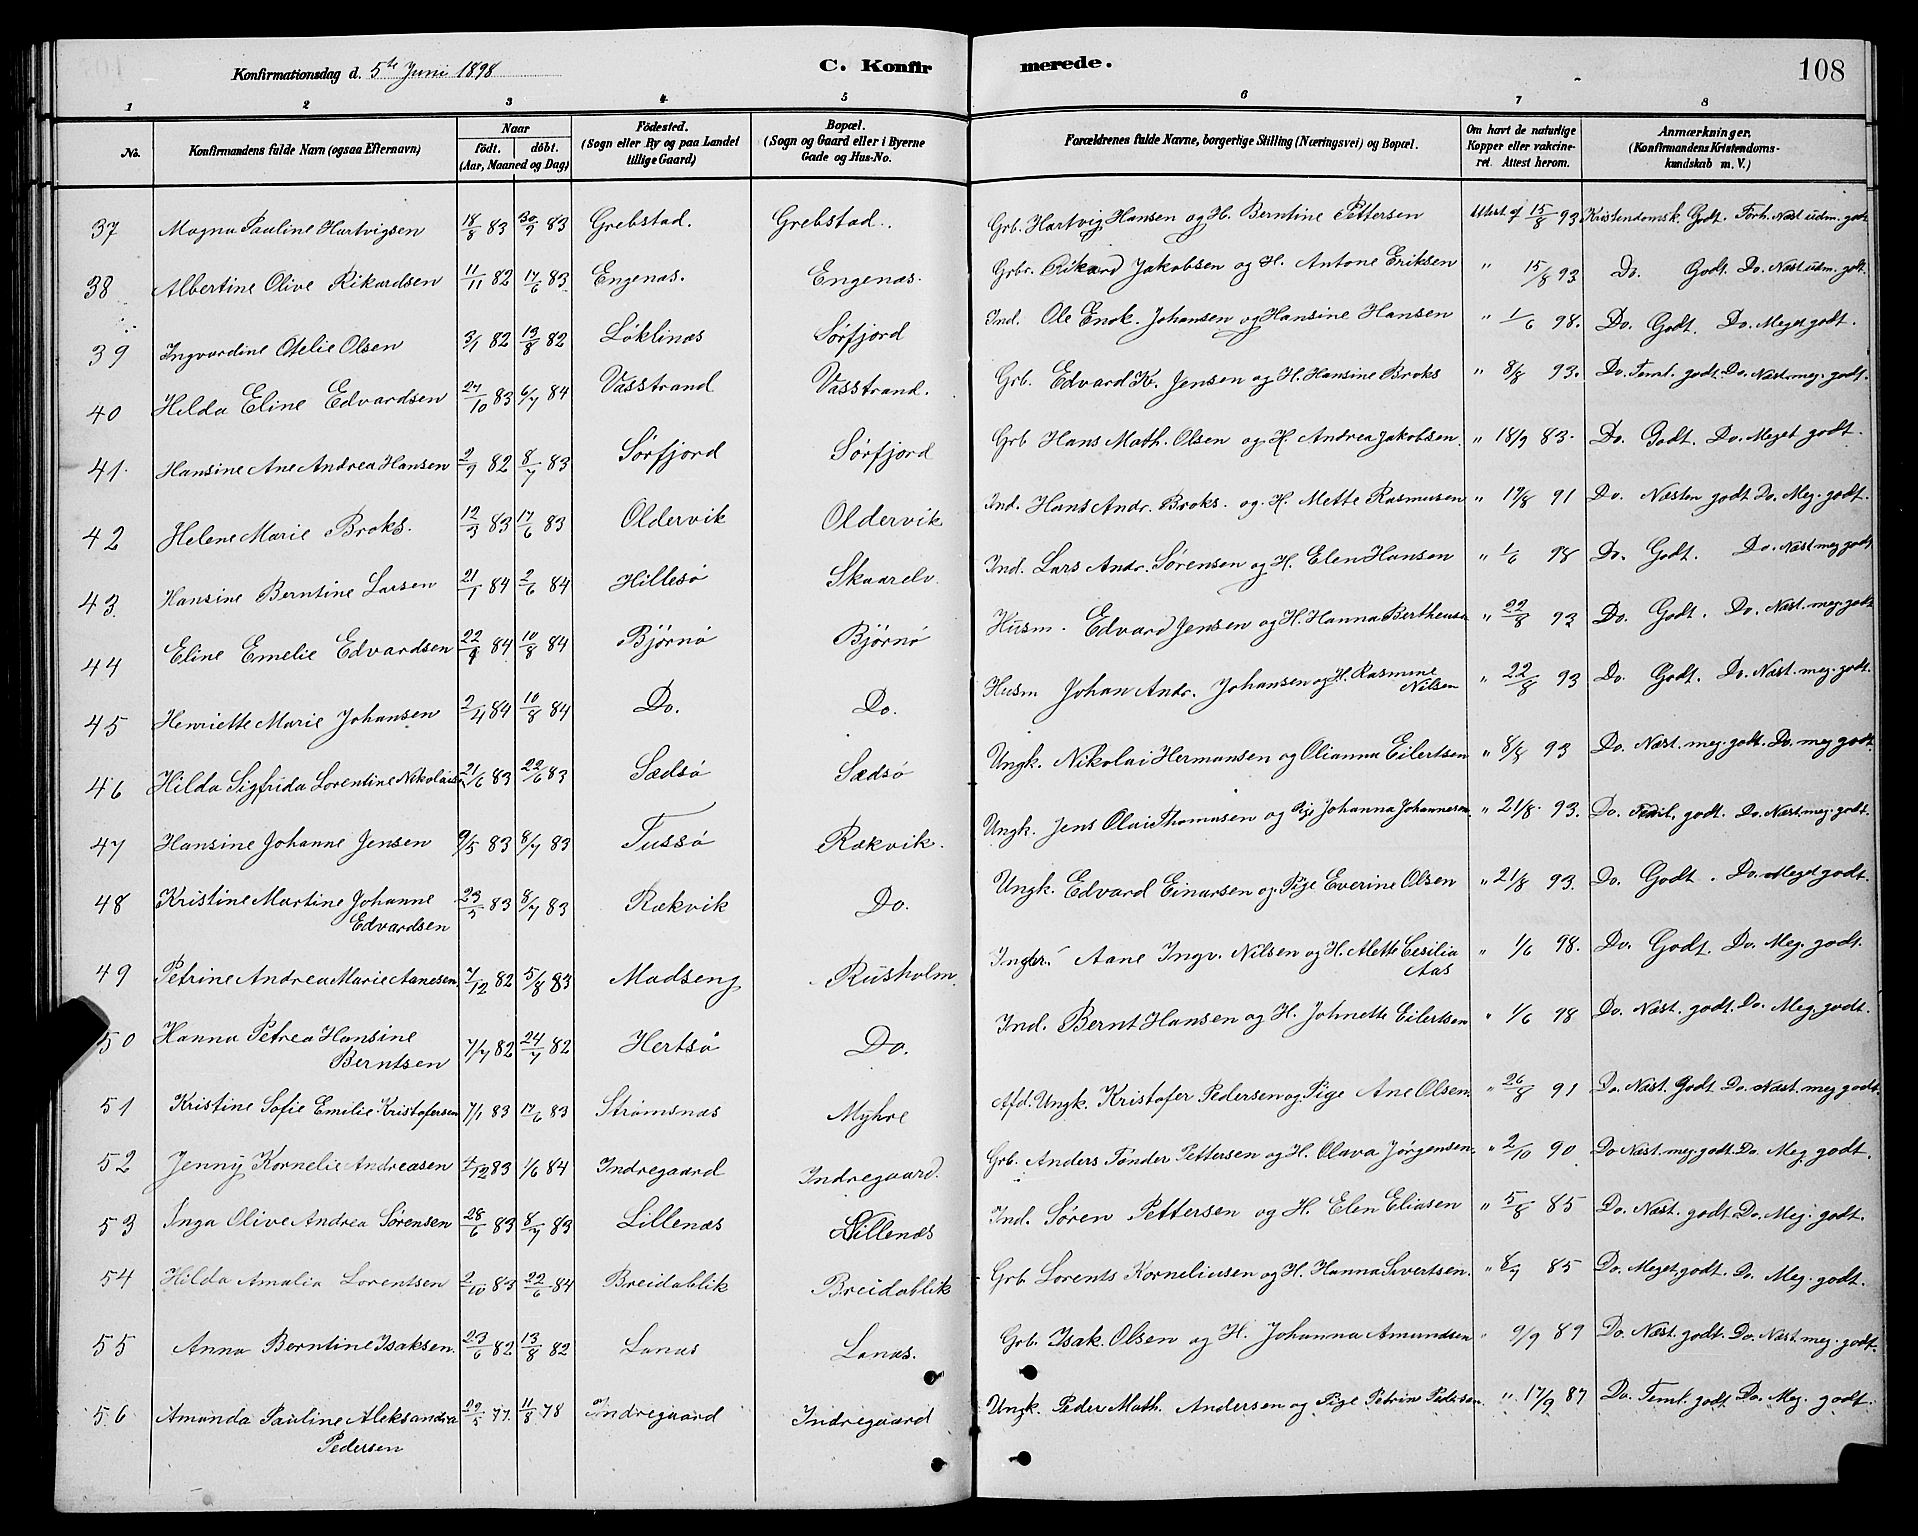 Konfirmationsdag d. 5te Juni 1898 C. Konfirmerede. 108
1 2 3 4 5 6 7 8
No. Konfirmandens fulde Navn (ogsaa Efternavn) Naar födt. döbt. (Aar, Maaned og Dag) Födested. (Sogn eller By og paa Landet tillige Gaard) Bopæl. (Sogn og Gaard eller i Byerne Gade og Hus-No. Forældrenes fulde Navne, borgerlige Stilling (Næringsvei) og Bopæl. Om havt de naturlige Kopper eller vakcineret. Attest herom. Anmærkninger. (Konfirmandens Kristendomskundskab m. V.)
37 Magna Pauline Hartvigsen 18/8 83 30/9 83 Grebstad. Grebstad. Grb. Hartvig Hansen og H. Berntine Pettersen Attest af 15/8 93 Kristendomsk. Godt. Forh. Næst udm. godt
38 Albertine Olive Rikardsen 11/11 82 17/6 83 Engenæs. Engenæs. Grbr. Rikard Jakobsen og H. Antone Eriksen " 15/8 93 Do. Godt. Do. Næst udm. godt.
39 Ingvardine Otelie Olsen 3/1 82 13/8 82 Løklinæs Sørfjord Ind. Ole Enok. Johansen og Hansine Hansen " 1/6 98. Do. Godt. Do. Meget godt.
40 Hilda Eline Edvardsen 27/10 83 6/7 84 Vasstrand Vasstrand. Grb. Edvard K. Jensen og H. Hansine Broks " 8/8 93. Do. Teml. godt. Do. Næst. meg. godt.
41. Hansine Ane Andrea Hansen 2/9 82 8/7 83 Sørfjord Sørfjord Grb Hans Math. Olsen og H. Andrea Jakobsen. " 18/9 83. Do. Godt. Do. Meget godt.
42 Helene Marie Broks. 12/3 83 17/6 83 Oldervik Oldervik Ind. Hans Andr. Broks. og H. Mette Rasmusen " 19/8 91 Do. Næsten godt Do. Meg. godt.
43. Hansine Berntine Larsen 21/1 84 2/6 84 Hillesø Skaarelv. Ind. Lars Andr. Sørensen og H. Elen Hansen " 1/6 98 Do. Godt. Do. Næst meg godt
44 Eline Emelie Edvardsen 22/4 84 10/8 84 Bjørnø Bjørnø Husm. Edvard Jensen og H. Hanna Berthensen " 22/8 93 Do. Godt. Do. Næst. meg. godt
45 Henriette Marie Johansen 2/4 84 10/8 84 Do. Do. Husm Johan Andr. Johansen og H. Rasmine Nilsen " 22/8 93 Do. Godt. Do. Næst. meg. godt.
46 Hilda Sigfrida Lorentine Nikolais. 21/6 83 22/6 83 Sædsø Sædsø Ungk. Nikolai Hermansen og Olianna Eilertsen " 8/8 93 Do. Næst. meg. godt. Do. meg godt
47 Hansine Johanne Jensen 9/5 83 8/7 83 Tussø Rækvik. Ungk. Jens Olai Thomasen og Pige Johanna Johannesen " 21/8. 93. Do. Teml. godt. Do. Næst. meg. godt.
48 Kristine Martine Johanne Edvardsen 23/5 83 8/7 83 Rækvik Do. Ungk. Edvard Einarsen og Pige Everine Olsen " 21/8 93. Do. Godt. Do. Meget godt.
49 Petrine Andrea Marie Aanesen. 7/12 82 5/8 83 Madseng Rusholm. Aane Ingv. Nilsen og H. Alette Cesilia Aas " 1/6 98. Do. Godt. Do. Meg. godt.
50 Hanna Petrea Hansine Berntsen 7/7 82 24/7 82 Hertsø Do. Ind. Bernt Hansen og H. Johnette Eilertsen " 1/6 98 Do. Næst. godt. Do. Meg. godt.
51 Kristine Sofie Emilie Kristofersen 7/1 83 17/6 83 Strømsnæs Myhre Afd. Ungk. Kristofer Pedersen og Pige Ane Olsen. " 26/8 91 Do. Næst. Godt. Do. Næst. meg godt.
52 Jenny Kornelie Andreasen 4/12 83 1/6 84 Indregaard Indregaard. Grb. Anders Tønder Pettersen og H. Olava Jørgensen. " 2/10 90 Do Næst. meg. godt. Do. Meg. godt.
53 Inga Olive Andrea Sørensen 28/6 83 8/7 83 Lillenæs Lillenæs Ind. Søren Pettersen og H. Elen Eliasen " 5/8 85 Do. Næst. godt. Do. Meg. godt.
54 Hilda Amalia Lorentsen 2/10 83 22/6 84 Breidablik Breidablik Grb Lorents Korneliusen og H. Hanna Sivertsen. " 8/7 85 Do. Meget godt. Do. Meg. godt.
55 Anna Berntine Isaksen. 23/6 82 13/8 82 Lanæs Lanæs. Grb. Isak. Olsen og H. Johanna Amundsen " 9/9 89 Do. Næst. godt. Do. Næst. meg. godt.
56 Amanda Pauline Aleksandra Pedersen 29/5 77. 11/8 78 Indregaard Indregaard Ungk. Peder Math. Andersen og Pige Petrine Pedersen " 17/9 87 Do. Teml. godt Do. Meg. godt.